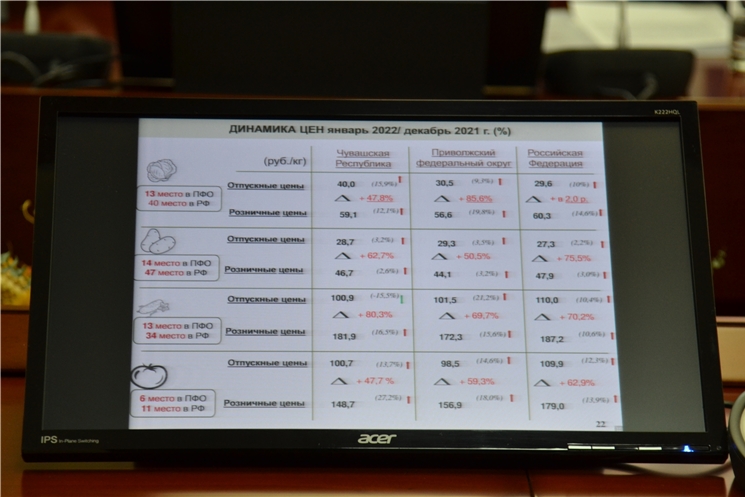 K222HQL
ДИНАМИКА ЦЕН январь 2022/ декабрь 2021 г. (%)
(руб./кг) Чувашская Республика Приволжский федеральный округ Российская Федерация
13 место в ПФО
40 место в РФ
Отпускные цены 40,0 (15,9%) 30,5 (9,3%) 29,6 (10%)
+ 47,8% + 85,6% + в 2,0 р.
Розничные цены 59,1 (12,1%) 56,6 (19,8%) 60,3 (14,6%)
14 место в ПФО
47 место в РФ
Отпускные цены 28,7 (3,2%) 29,3 (3,5%) 27,3 (2,2%)
+ 62,7% + 50,5% + 75,5%
Розничные цены 46,7 (2,6%) 44,1 (3,2%) 47,9 (3,0%)
13 место в ПФО
34 место в РФ
Отпускные цены 100,9 (-15,3%) 101,5 (21,2%) 110,0 (10,4%)
+ 80,3% + 69,7% + 70,2%
Розничные цены 181,9 (16,5%) 172,3 (15,6%) 187,2 (10,6%)
6 место в ПФО
11 место в РФ
Отпускные цены 100,7 (13,7%) 98,5 (14,6%) 109,9 (12,3%)
+ 47,7 % + 59,3% + 62,9%
Розничные цены 148,7 (27,2%) 156,9 (18,0%) 179,0 (13,9%)
22
IPS In-Plane Switching
acer